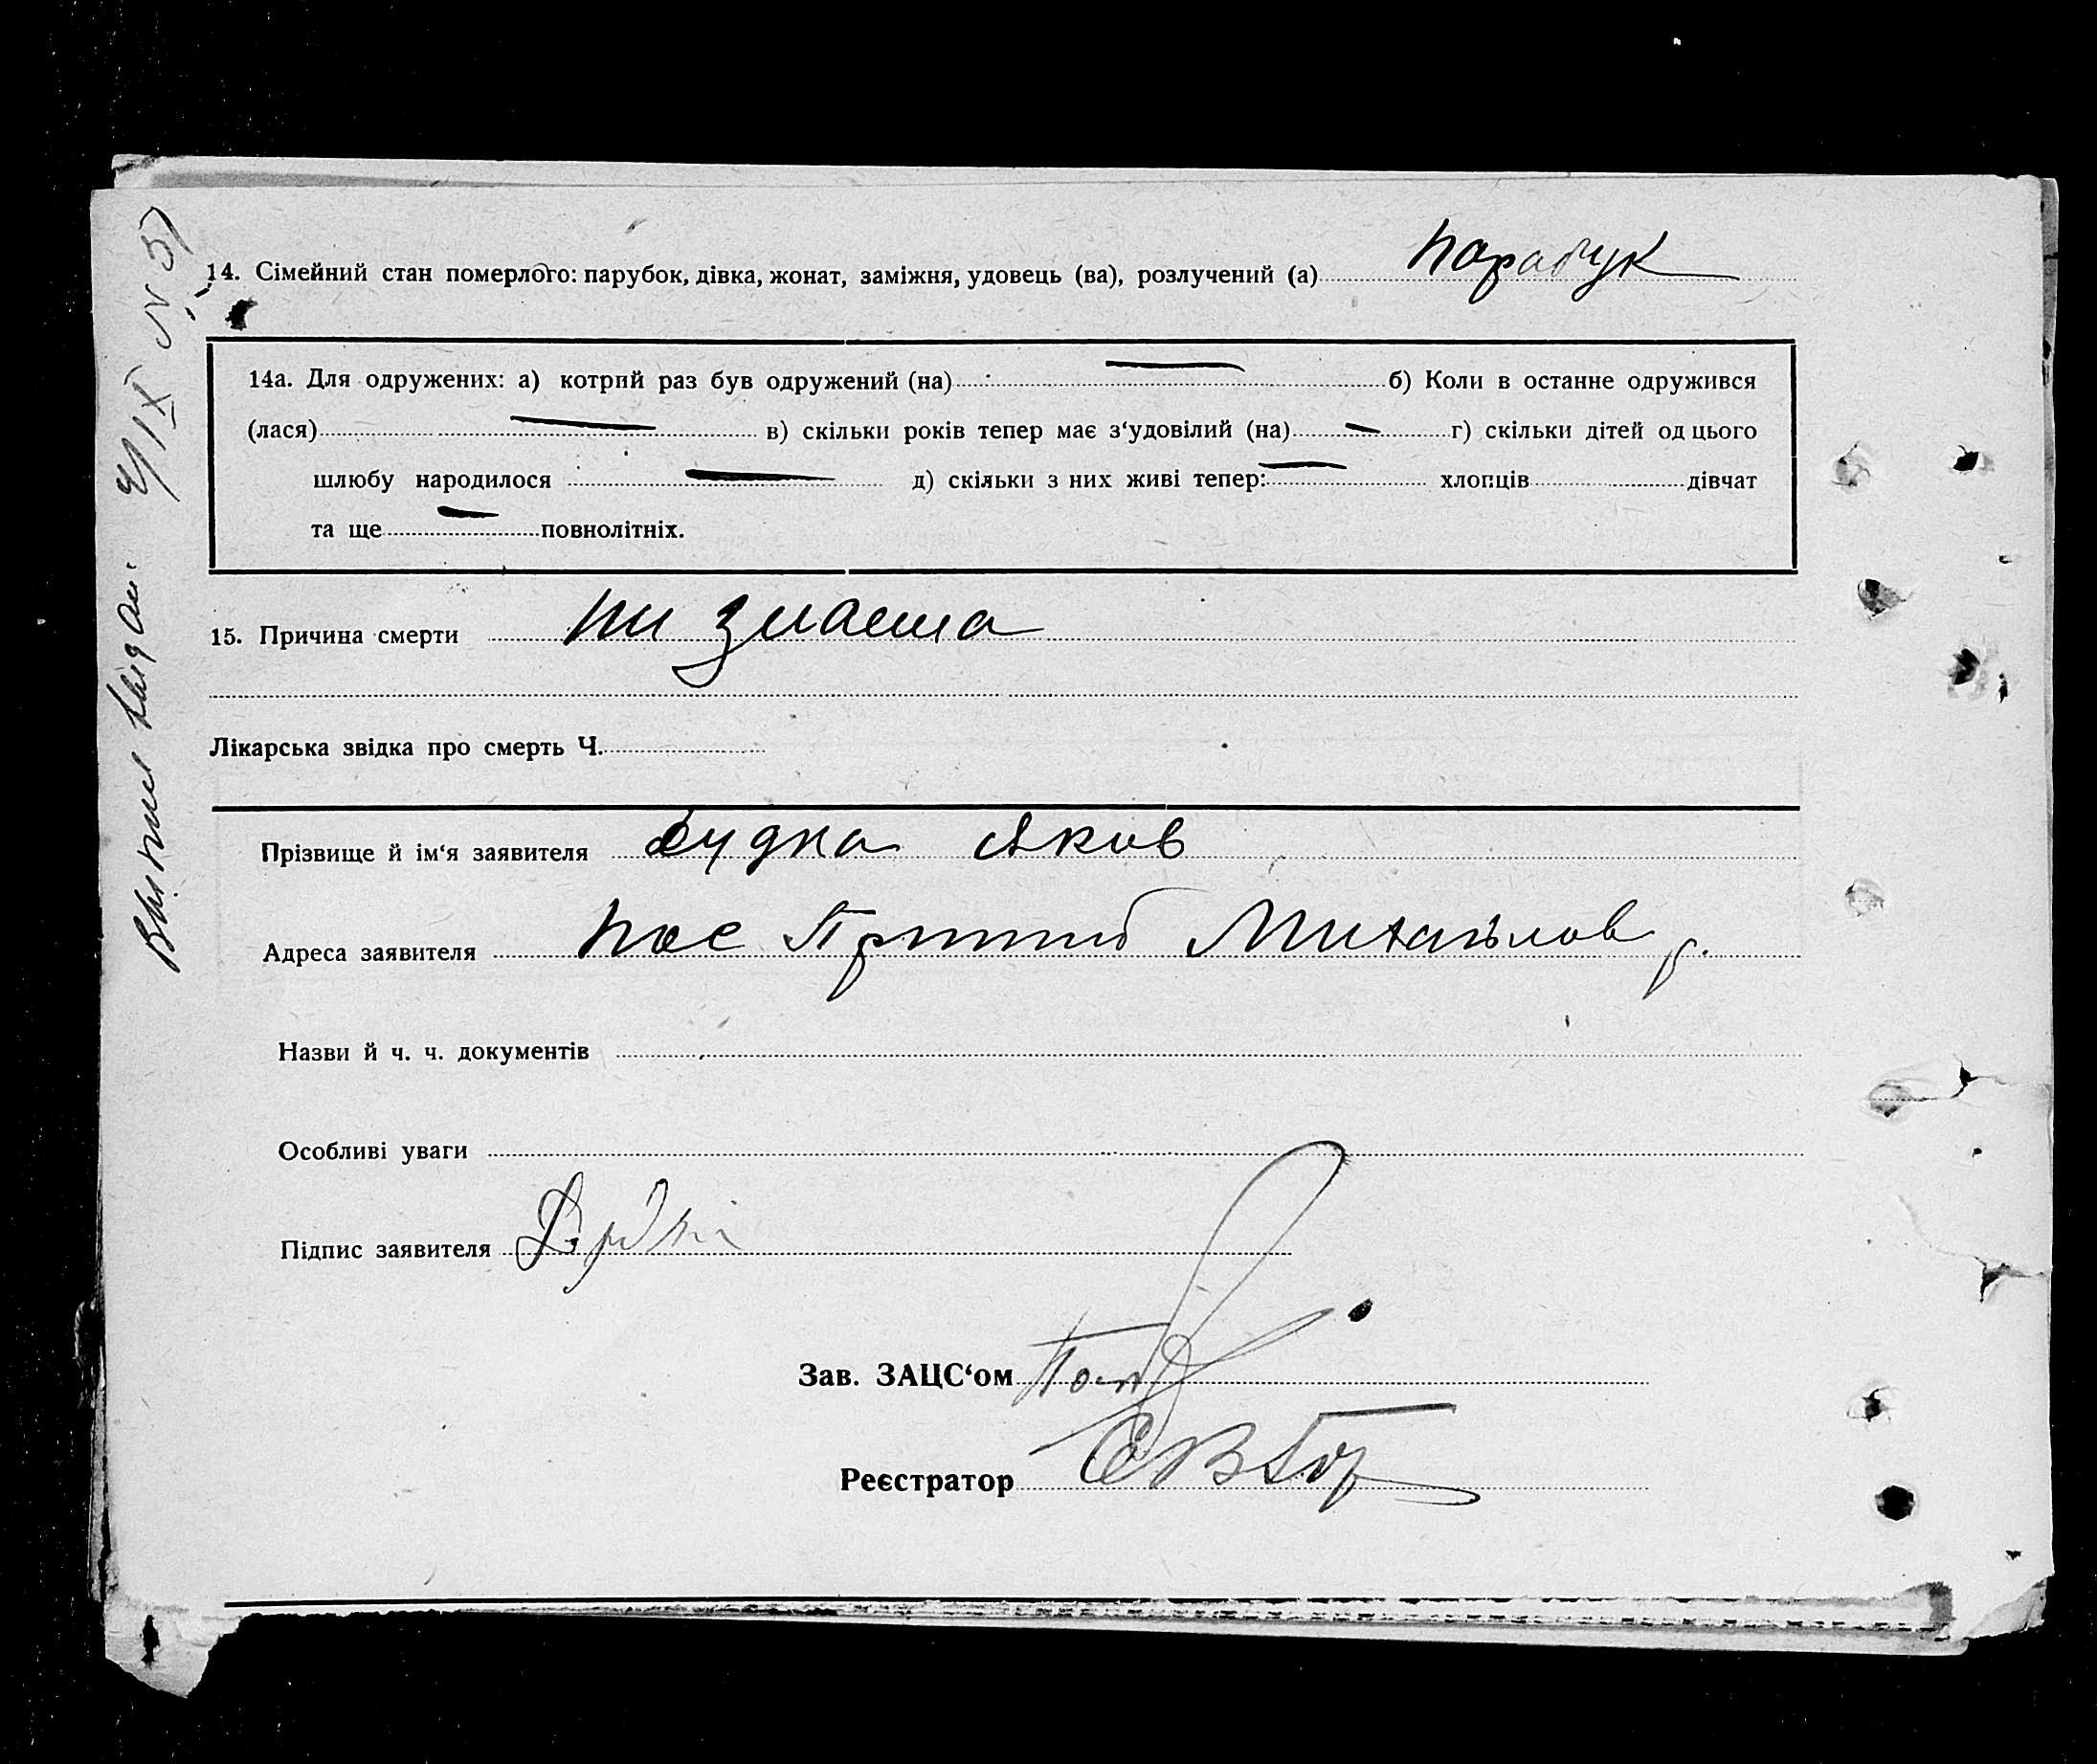 14. Сімейний стан померлого: парубок, дівка, жонат, заміжня, удовець (ва), розлучений (а) парабук
14а. Для одружених: а) котрий раз був одружений (на) б) Коли в останне одружився
(лася) в) скільки років тепер має з‘удовілий (на) г) скільки дітей од цього
шлюбу народилося д) скільки з них живі тепер: хлопців дівчат
та ще повнолітніх.
15. Причина смерти ни знаема
Лікарська звідка про смерть Ч.
Прізвище й ім‘я заявителя Дудка Яков
Адреса заявителя пос Михайлов р.
Назви й ч. ч. документів
Особливі уваги
Підпис заявителя
Зав. ЗАЦС‘ом
Реєстратор
IX N 51